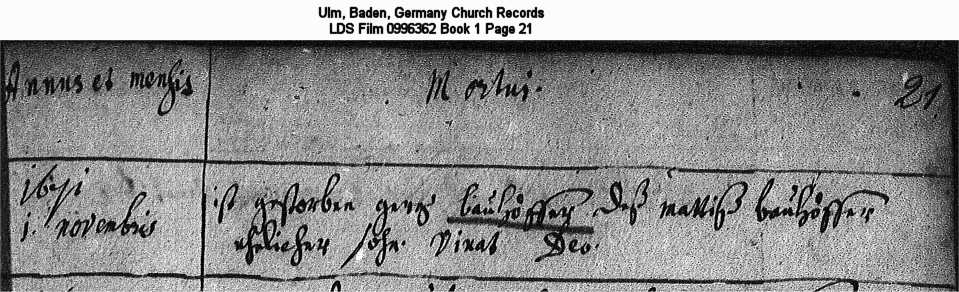 Ulm, Baden, Germany Church Records
LDS Film 0996362 Book 1 Page 21
Annus et mensis
Mortui.
21
1671
1. novembris
ist gestorben georg bauhöffer deß mattiß bauhöffer
ehelicher sohn. Vivat Deo.